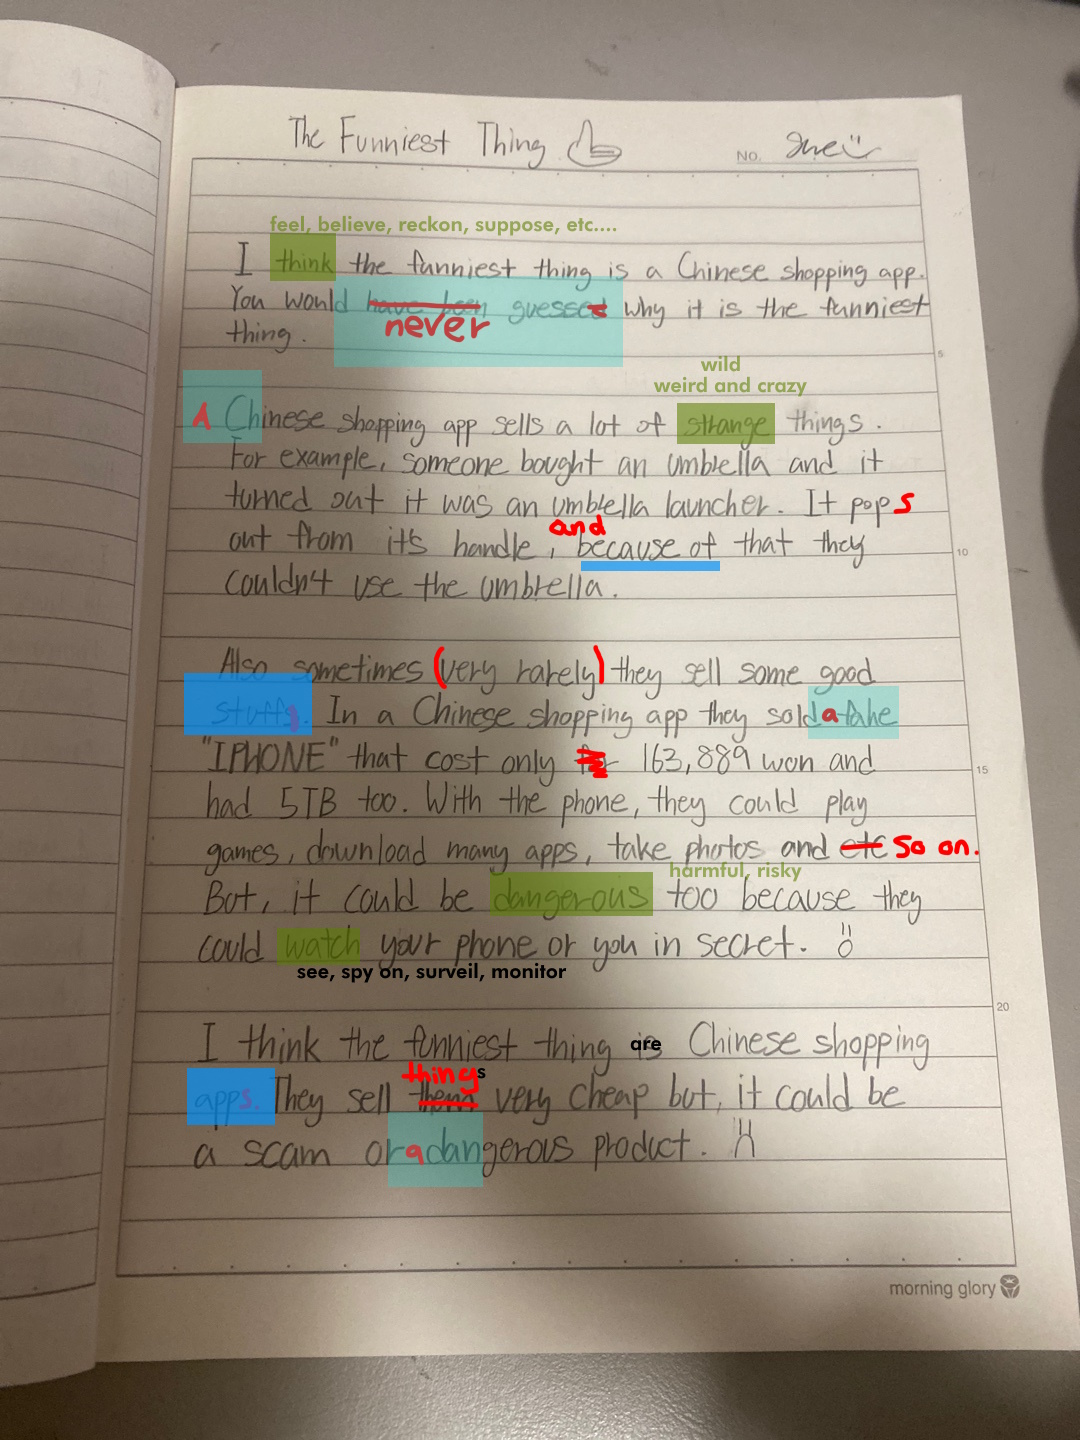 The Funniest Thing
No. Sue
feel, believe, reckon, suppose, etc....
I think the funniest thing is a Chinese shopping app.
You would have been guessed why it is the funniest
never
thing.
5
wild
weird and crazy
A Chinese shopping app sells a lot of strange things.
For example, someone bought an umbrella and it
turned out it was an umbrella launcher. It pops
and
out from it's handle, because of that they
10
couldn't use the umbrella.
Also sometimes (very rarely) they sell some good
stuffs. In a Chinese shopping app they sold a fake
"IPHONE" that cost only for 163,889 won and
15
had 5TB too. With the phone, they could play
games, download many apps, take photos and etc so on.
harmful, risky
But, it could be dangerous too because they
could watch your phone or you in secret.
see, spy on, surveil, monitor
20
I think the funniest thing are Chinese shopping
things
apps. They sell them very cheap but, it could be
a scam or a dangerous product.
morning glory